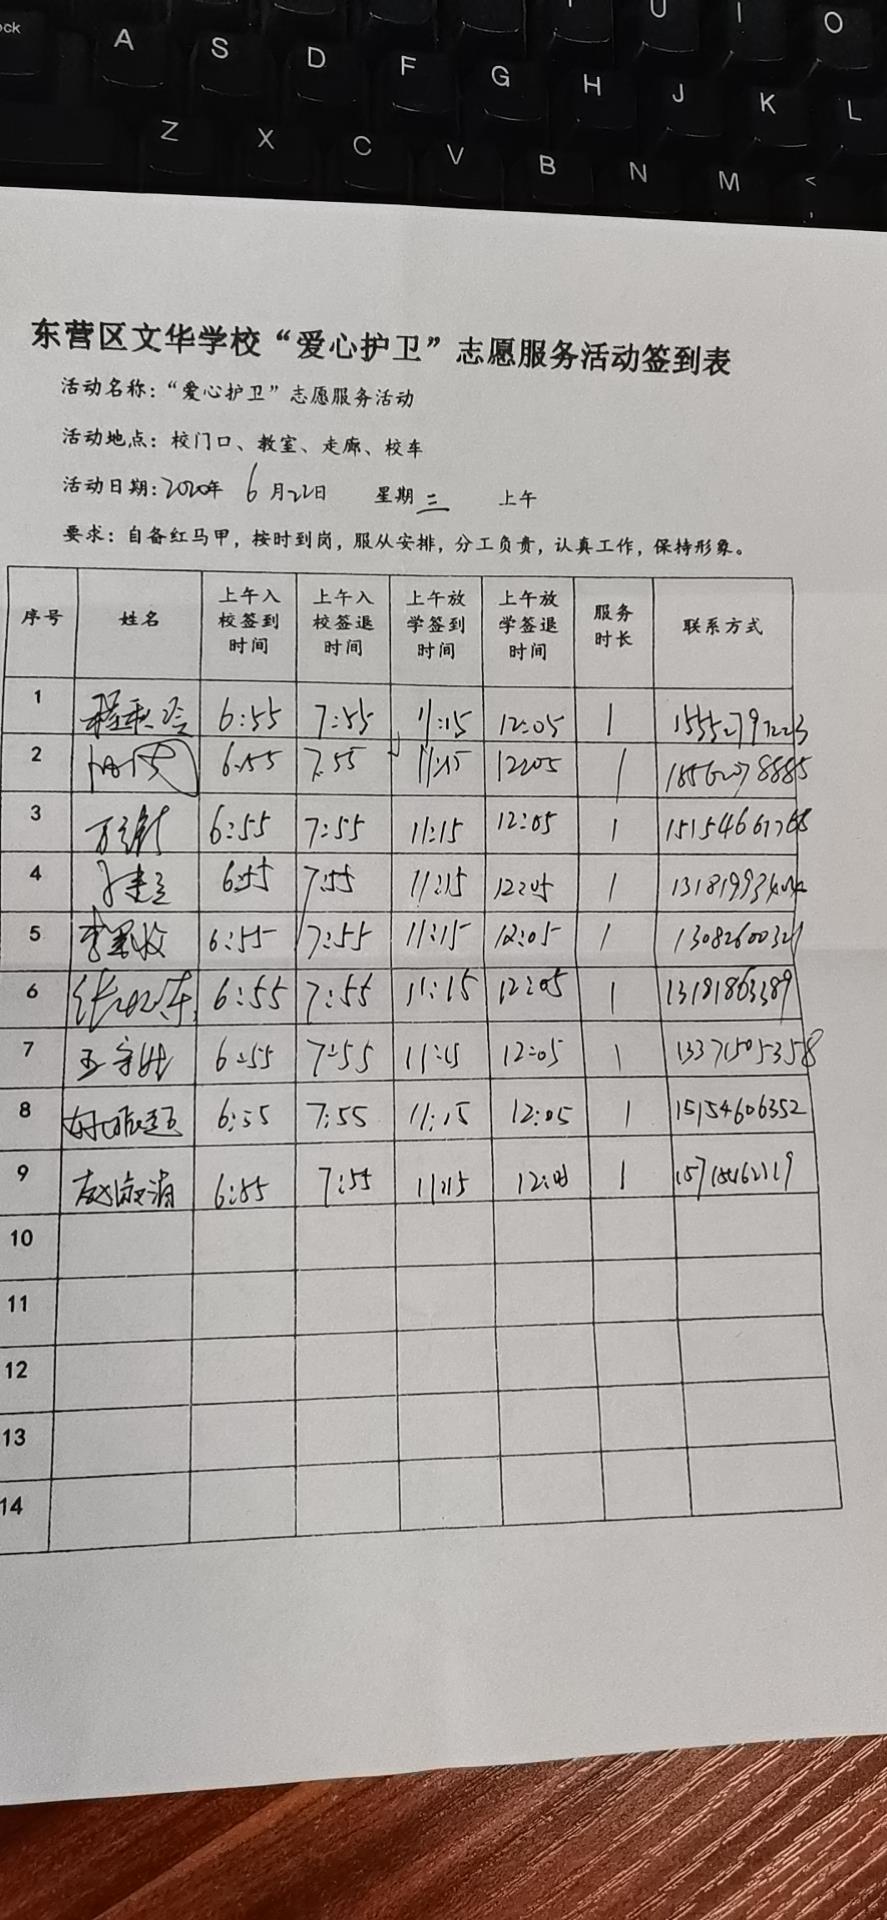 ock
U I O
A S D F G H J K L
Z X C V B N M <
,
东营区文华学校“爱心护卫”志愿服务活动签到表
活动名称：“爱心护卫”志愿服务活动
活动地点：校门口、教室、走廊、校车
活动日期：2020年 6月22日 星期三 上午
要求：自备红马甲，按时到岗，服从安排，分工负责，认真工作，保持形象。
序号 姓名 上午入校签到时间 上午入校签退时间 上午放学签到时间 上午放学签退时间 服务时长 联系方式
1 6:55 7:55 11:15 12:05 1
2 6:55 7:55 11:15 12:05 1
3 6:55 7:55 11:15 12:05 1
4 6:55 7:55 11:15 12:05 1
5 6:55 7:55 11:15 12:05 1
6 6:55 7:55 11:15 12:05 1 13181863389
7 6:55 7:55 11:15 12:05 1 13371505358
8 6:55 7:55 11:15 12:05 1 15154606352
9 6:55 7:55 11:15 1
10
11
12
13
14